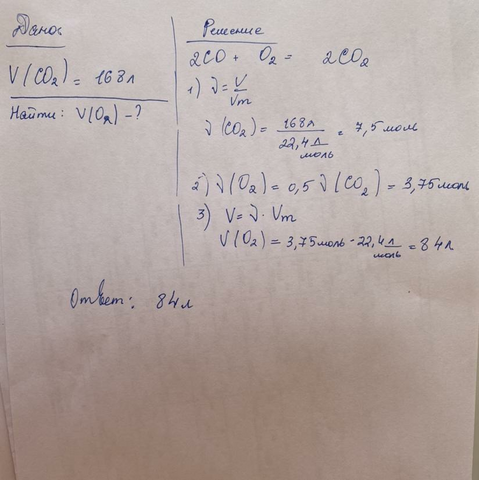 Дано:
V(CO₂) = 168л
Найти: V(O₂) - ?
Решение
2CO + O₂ = 2CO₂
1) ν = V/Vm
ν(CO₂) = 168л/22,4 л/моль = 7,5 моль
2) ν(O₂) = 0,5 ν(CO₂) = 3,75 моль
3) V = ν · Vm
V(O₂) = 3,75 моль · 22,4 л/моль = 84л
Ответ: 84л